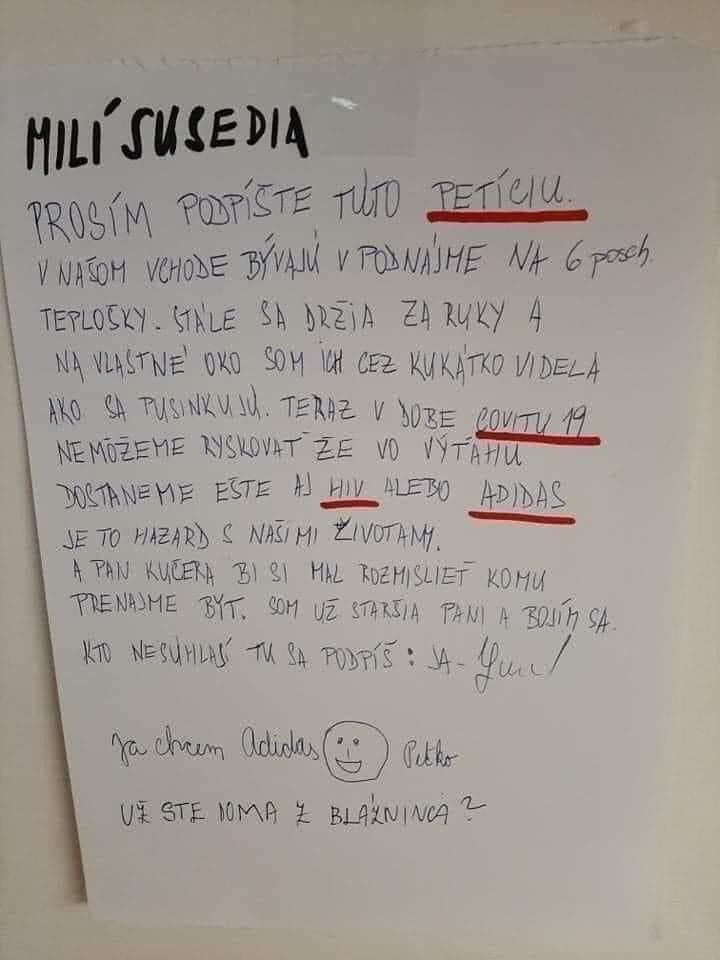 MILÍ SUSEDIA
PROSÍM PODPÍŠTE TÚTO PETÍCIU.
V NAŠOM VCHODE BÝVAJÚ V PODNÁJME NA 6 posch.
TEPLOŠKY. STÁLE SA DRŽIA ZA RUKY A
NA VLASTNÉ OKO SOM ICH CEZ KUKÁTKO VIDELA
AKO SA PUSINKUJÚ. TERAZ V DOBE COVITU 19
NEMÔŽEME RYSKOVAŤ ŽE VO VÝŤAHU
DOSTANEME EŠTE AJ HIV ALEBO ADIDAS
JE TO HAZARD S NAŠIMI ŽIVOTAMY.
A PAN KUČERA BI SI MAL ROZMISLIEŤ KOMU
PRENAJME BYT. SOM UŽ STARŠIA PANI A BOJÍM SA.
KTO NESÚHLASÍ TU SA PODPÍŠ: JA -
Ja chcem Adidas Peťko
UŽ STE DOMA Z BLÁZNINCA?